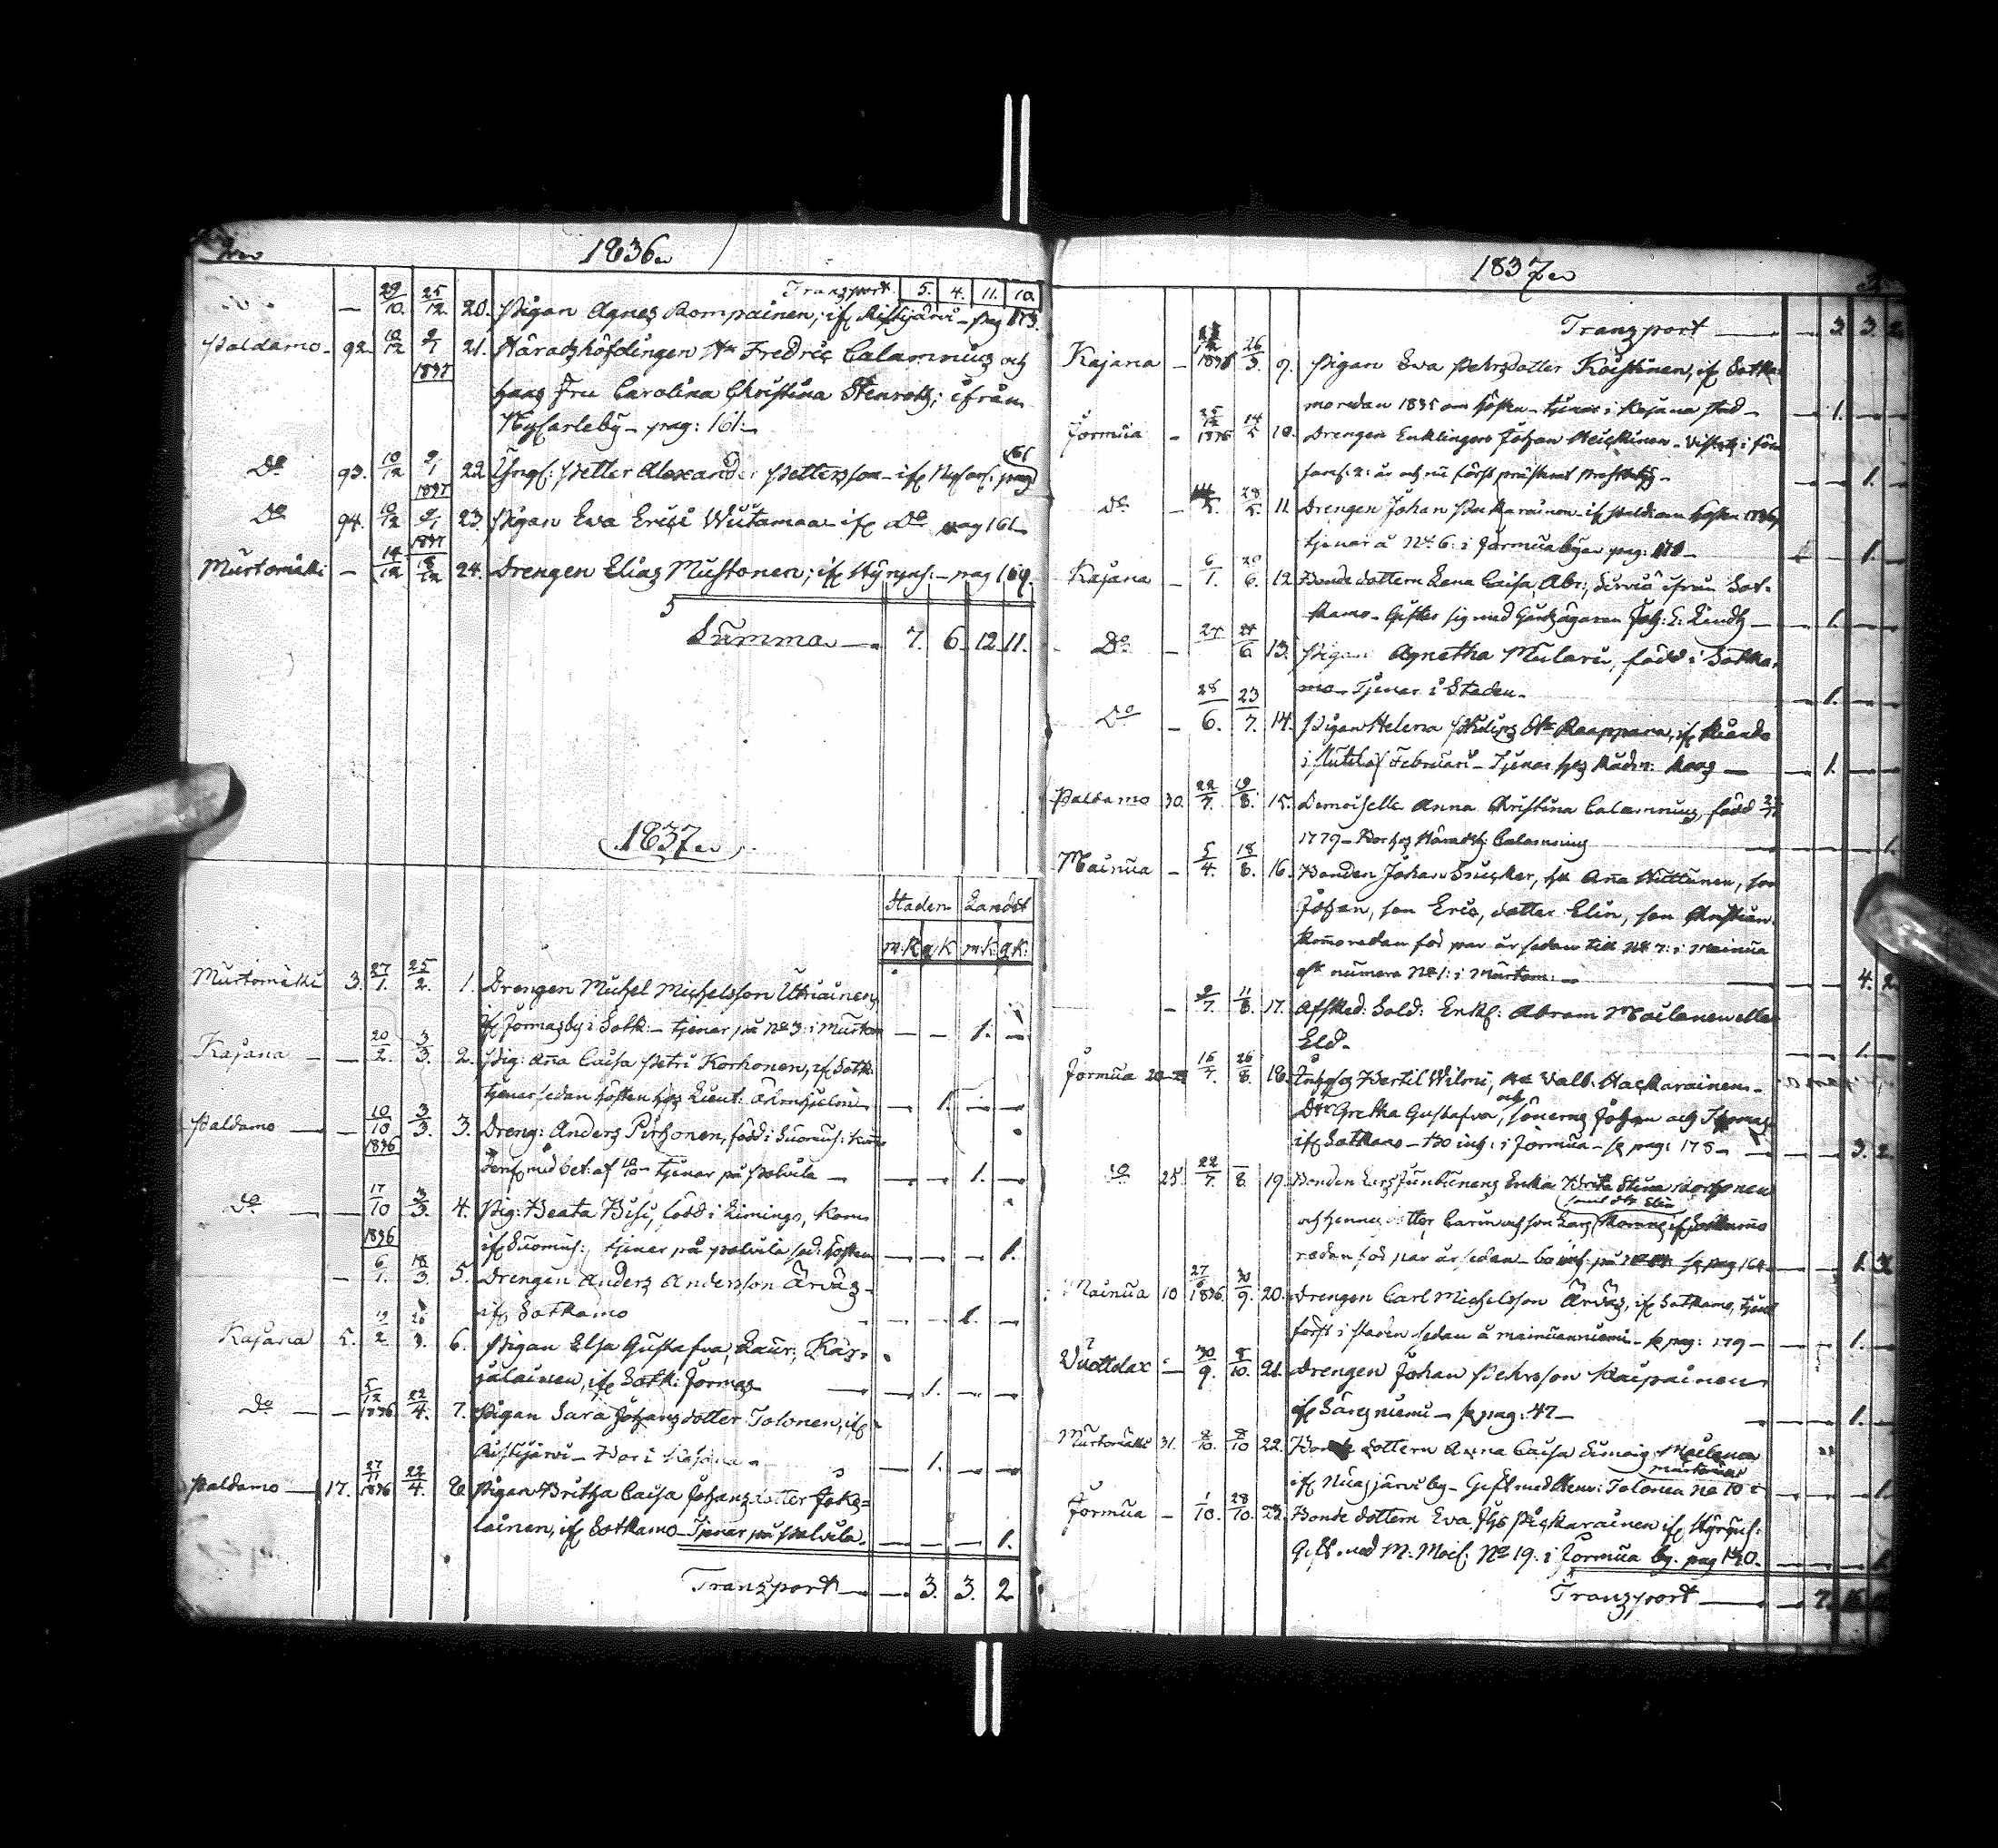 1836
Transport 5. 4. 11. 10.
— 29/10. 25/12. 20. Pigan Agnes Kompainen, if. Ristijärvi — pag 173.
Paldamo. 92. 10/12 9/1 1837 21. Häradshöfdingen Hr Fredric Calamnius och
hans Fru Carolina Christina Stenroth; ifrån
Nycarleby — pag: 161.
Do 93. 10/12 9/1 1837 22. Petter Alexander Pettersson — if. pag 161
Do 94. 10/12 9/1 1837 23. Pigan Eva Erici Wiitamaa — if. Do pag 161.
Murtomäki — 14/12 18/12 24. Drengen Elias Mustonen; if. Hyryns: — pag 169.
Summa — 7. 6. 12. 11.
1837
Staden Landet
m.k. q.k. m.k. q.k.
Murtomäki 3. 27/1. 25/2. 1. Drengen Michel Michelsson Utriainen,
if. Jormasby i Sotk: — tjenar på No 3: i Murtom — — 1. —
Kajana — — 20/2. 3/3. 2. Pig: Aña Caisa Petri Korhonen, if. Sotk.
tjenar sedan hösten hos Lieut: — 1. — —
Paldamo — — 10/10 1836 3/3. 3. Dreng: Anders Pirhonen, född i Suomus:
med bet: af tjenar på Palvila — — — 1. —
Do — — 17/10 1836 3/3. 4. Pig: Beata Bisi, född i Limingo, kom
if. Suomus:, tjenar på Palvila sed: hösten — — — 1.
— 6/1. 18/3. 5. Drengen Anders Andersson Ärväs —
if. Sotkamo — — 1. —
Kajana 5. 19/2 26/3. 6. Pigan Elsa Gustafva, Laur: Kar-
jalainen, if. Sotk: Jormas — — 1. — —
Do — — 5/12 1836 22/4. 7. Pigan Sara Johansdotter Tolonen, if.
Ristijärvi — Bor i Kajana — — 1. — —
Paldamo — 17. 27/11 1836 22/4. 8. Pigan Britha Caisa Johansdotter Joke-
lainen, if. Sotkamo — Tjenar på Palvila. — — — 1.
Transport — — 3. 3. 2
1837
Transport — — 3. 3. 2
Kajana — 1836 26/3. 9. Pigan Eva Pehrsdotter if. Sotka-
mo redan 1835 om hösten — tjenar i Kajana stad — — 1. — —
Jormua — 1836 14/5 10. Drengen Enklingen Johan Heickinen —
2: år och nu först — — 1. —
Do — 28/5. 11. Drengen Johan Karainen — if. Paldam hösten 1836
tjenar å No 6: i Jormua byn pag: — 1. —
Kajana — 6/1. 20/6. 12. Bonde dottern Lena Caisa Abr: Sirviö ifrån Sot-
kamo — Gifter sig med Gårdsägaren Joh: E: Lindh — — 1. — —
Do — 27 /6. 13. Pigan Agnetha Mularu, född i Sotka-
mo — Tjenar i Staden. — 1. — —
Do — 28/6. 23/7. 14. Pigan Helena Philips Dr Kaappana, if. Kiando
i slutet af Februari — Tjenar hos Rådm: — — 1. — —
Paldamo 30. 22/7. 15. Demoiselle Anna Christina Calamnius, född
1779 — Bor hos Häradsh: Calamnius — 1.
Mainua — 5/4. 18/8. 16. Bonden Johan hu Aña Huttunen, son
Johan, son Eric, dotter Elin, son Christian.
Kom redan för par år sedan till No 7: i Mainua
och numera No 1: i Murtom: — — 4. 2
— 9/7. 11/8. 17. Afsked: Sold: Enkl: Abram Moilanen eller
Eld. — — 1. —
Jormua 16/7. 26/8. 18. Bertil Wilmi, hu Valb: Hackarainen —
Dtr Gretha Gustafva, och sönerna Johan och Thomas
if. Sotkamo — Bo inh: i Jormua — se pag: 178 — — 3. 2
Do 25. 22/7. /8. 19. Bonden Lars Juntunens Enka Brita Stina Korhonen
samt dtr Elin
och hennes dotter Carin och son Lars if. Sotkamo
redan för par år sedan — bo se pag 164 — — 1. 3
Mainua 10 27/ 1836. 30/9. 20. Drengen Carl Michelsson Ärväs, if. Sotkamo, tjent
först i staden sedan å Mainuanniemi — se pag: 179 — — — 1. —
Vuottolax — 30/9. 8/10. 21. Drengen Johan Pehrsson Kaipainen
if. Säresniemi — se pag: 47 — — — 1. —
Murtomäki 31. 2/10. 8/10 22. Bonde dottern Anna Caisa Simois Moilanen
if. Nuasjärvi by — Gift med Henr: Tolonen No 10 i Murtomäki — 1.
Jormua — 1/10. 28/10. 23. Bonde dottern Eva Johs Pickarainen if. Hyryns:
Gift med M: Moil: No 19: i Jormua by. pag — — — 1.
Transport — — 7.